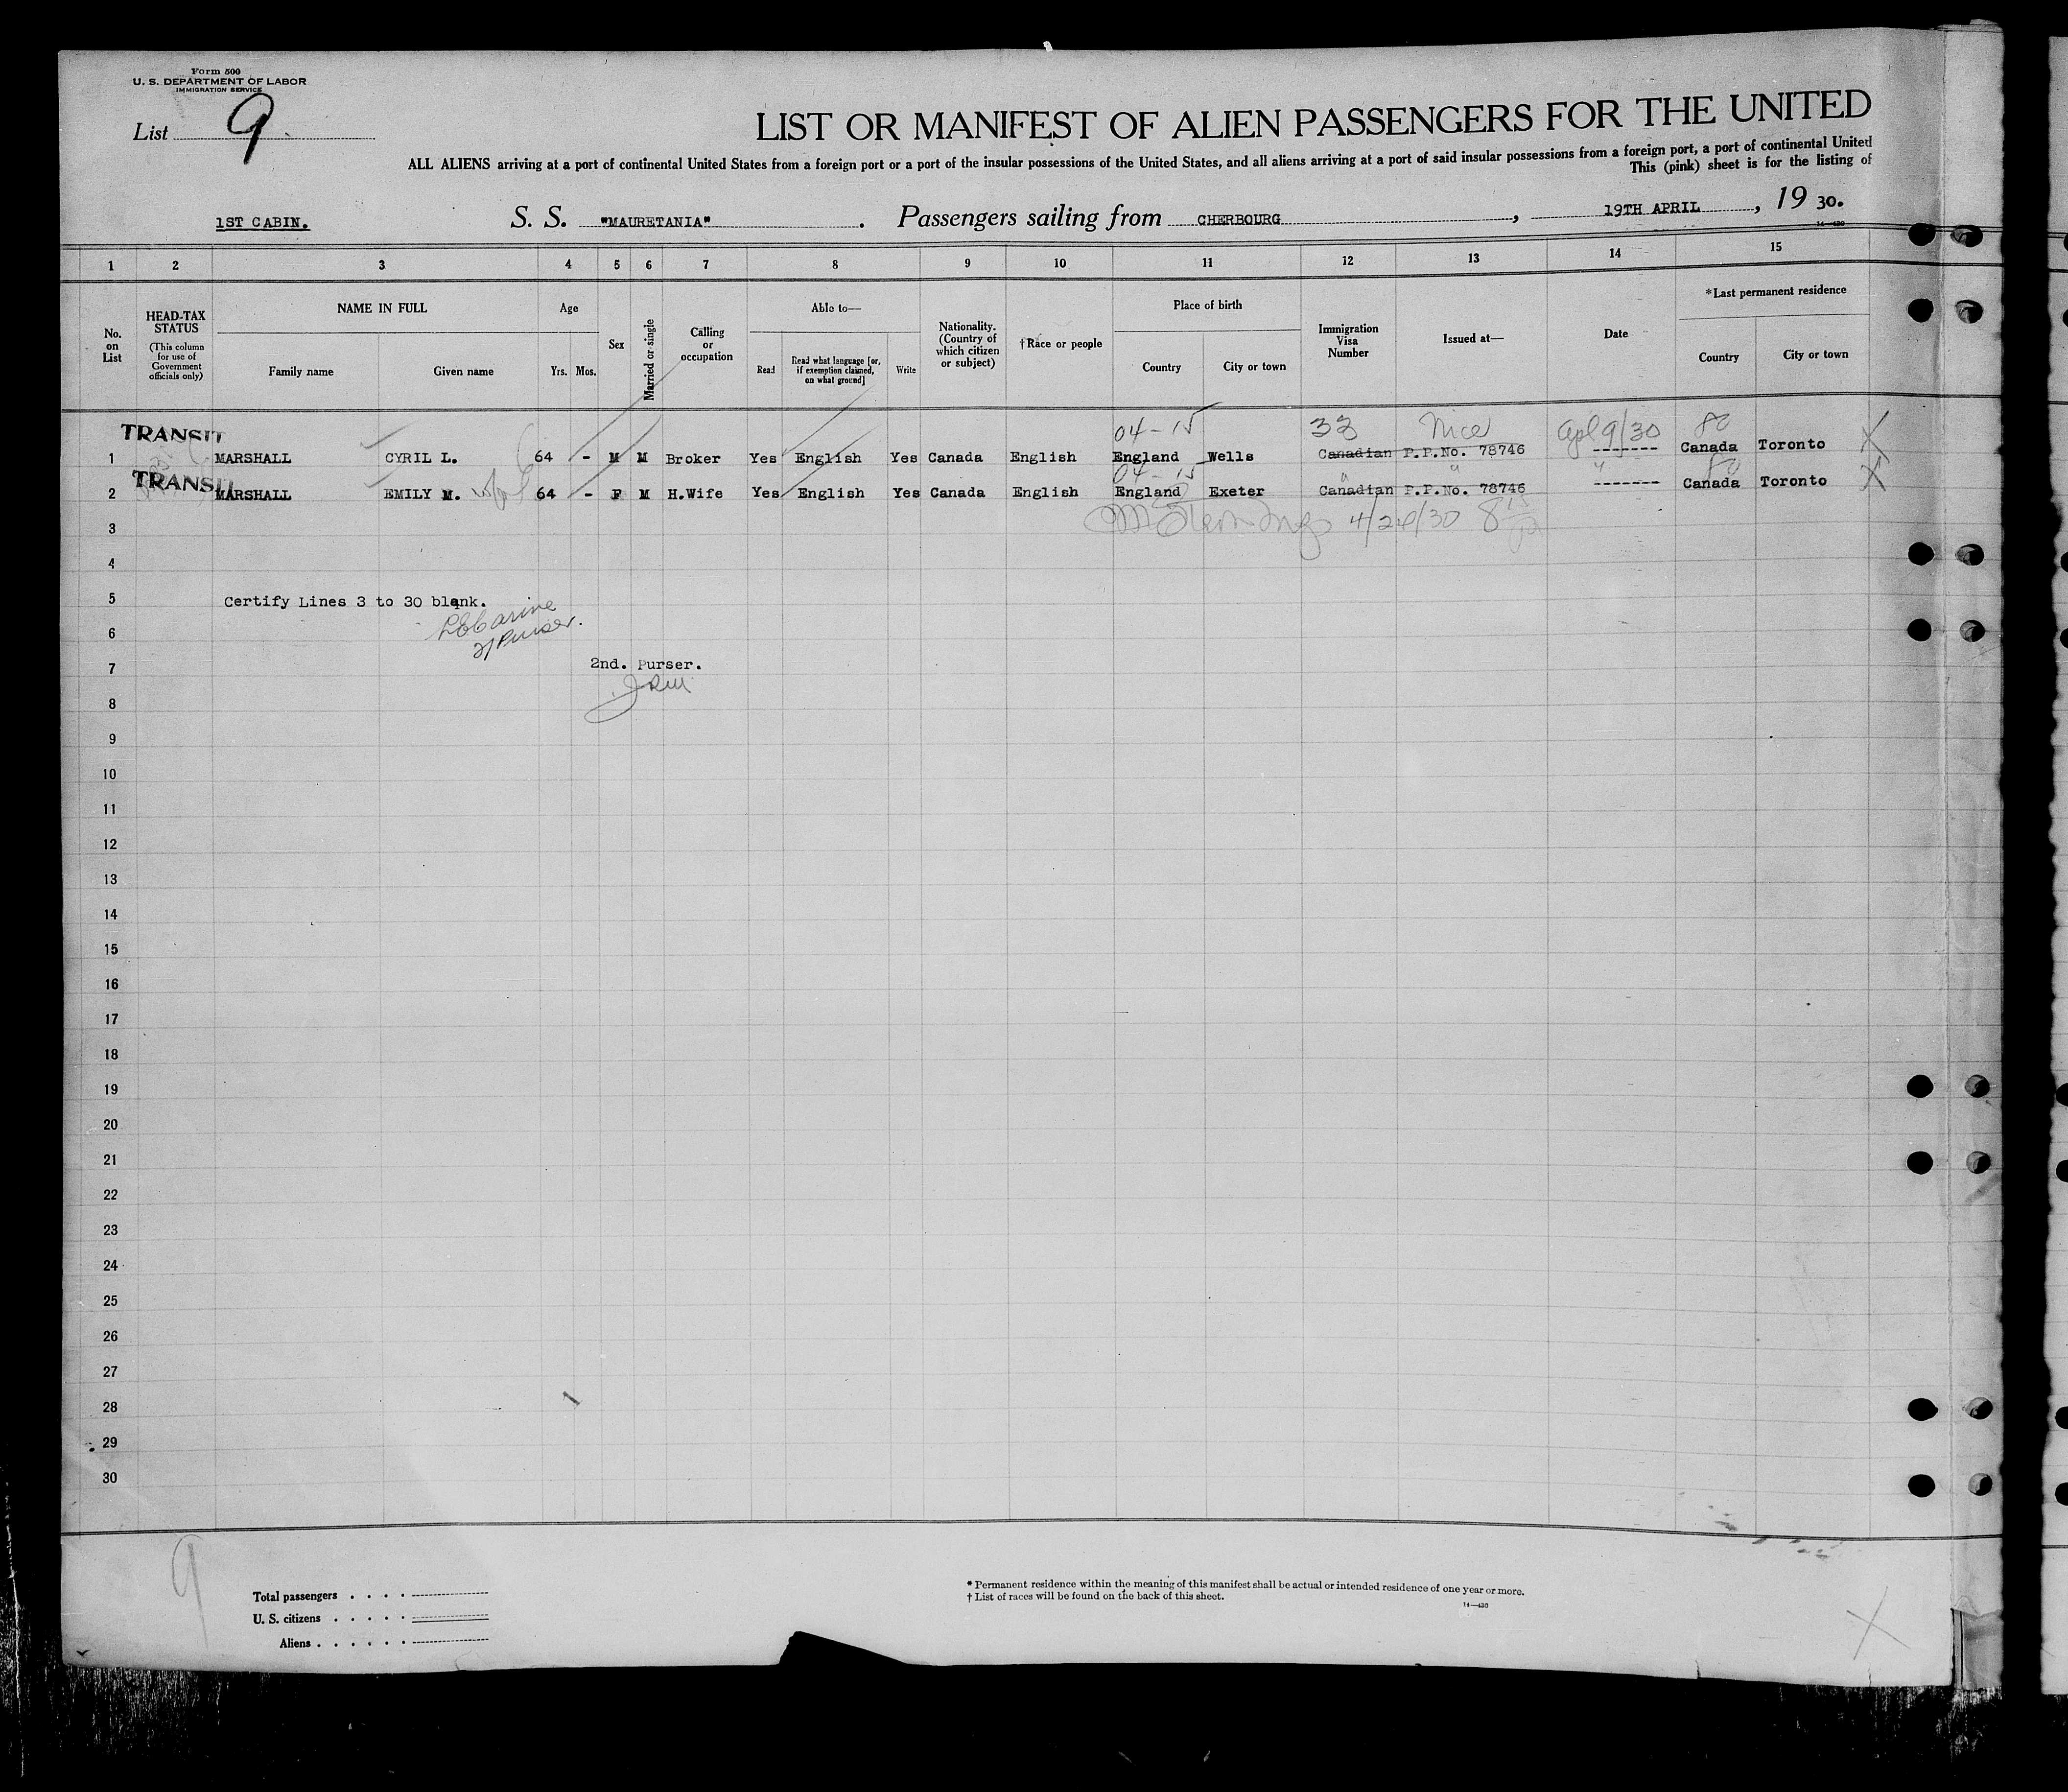 Form 500
U. S. DEPARTMENT OF LABOR
IMMIGRATION SERVICE
List 9
LIST OR MANIFEST OF ALIEN PASSENGERS FOR THE UNITED
ALL ALIENS arriving at a port of continental United States from a foreign port or a port of the insular possessions of the United States, and all aliens arriving at a port of said insular possessions from a foreign port, a port of continental United
This (pink) sheet is for the listing of
1ST CABIN. S. S. "MAURETANIA". Passengers sailing from CHERBOURG, 19TH APRIL, 19 30.
14—430
1 2 3 4 5 6 7 8 9 10 11 12 13 14 15
No. on List
HEAD-TAX STATUS
(This column for use of Government officials only)
NAME IN FULL
Family name Given name
Age
Yrs. Mos.
Sex
Married or single
Calling or occupation
Able to—
Read
Read what language [or, if exemption claimed, on what ground]
Write
Nationality. (Country of which citizen or subject)
†Race or people
Place of birth
Country City or town
Immigration Visa Number
Issued at—
Date
*Last permanent residence
Country City or town
TRANSIT 04-15 33 Nice Apl 9/30 80
1 MARSHALL CYRIL L. 64 - M M Broker Yes English Yes Canada English England Wells Canadian P.P.No. 78746 ------- Canada Toronto X
TRANSIT 04-15 " " " 80
2 MARSHALL EMILY M. wife 64 - F M H.Wife Yes English Yes Canada English England Exeter Canadian P.P.No. 78746 ------- Canada Toronto X
3 4/24/30
4
5 Certify Lines 3 to 30 blank.
6 2/Purser.
7 2nd. Purser.
8
9
10
11
12
13
14
15
16
17
18
19
20
21
22
23
24
25
26
27
28
29
30
9
Total passengers . . . .
U. S. citizens . . . . .
Aliens . . . . . .
* Permanent residence within the meaning of this manifest shall be actual or intended residence of one year or more.
† List of races will be found on the back of this sheet.
14—430
X